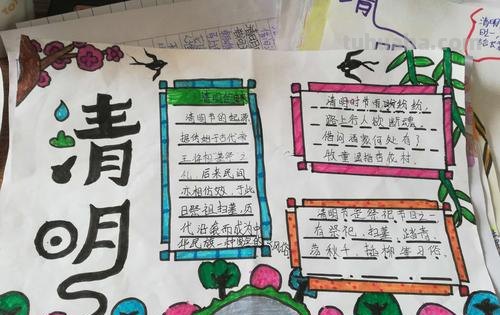 清明
清明的由来
清明节的起源
据传始于古代帝
王将相墓祭之
礼，后来民间
亦相仿效，于此
日祭祖扫墓，历
代沿袭而成为中
华民族一种固定的风俗
清明时节雨纷纷，
路上行人欲断魂
借问酒家何处有？
牧童遥指杏花村。
清明节是祭祀节日之一
有祭祀，扫墓，踏青
荡秋千，插柳等习俗